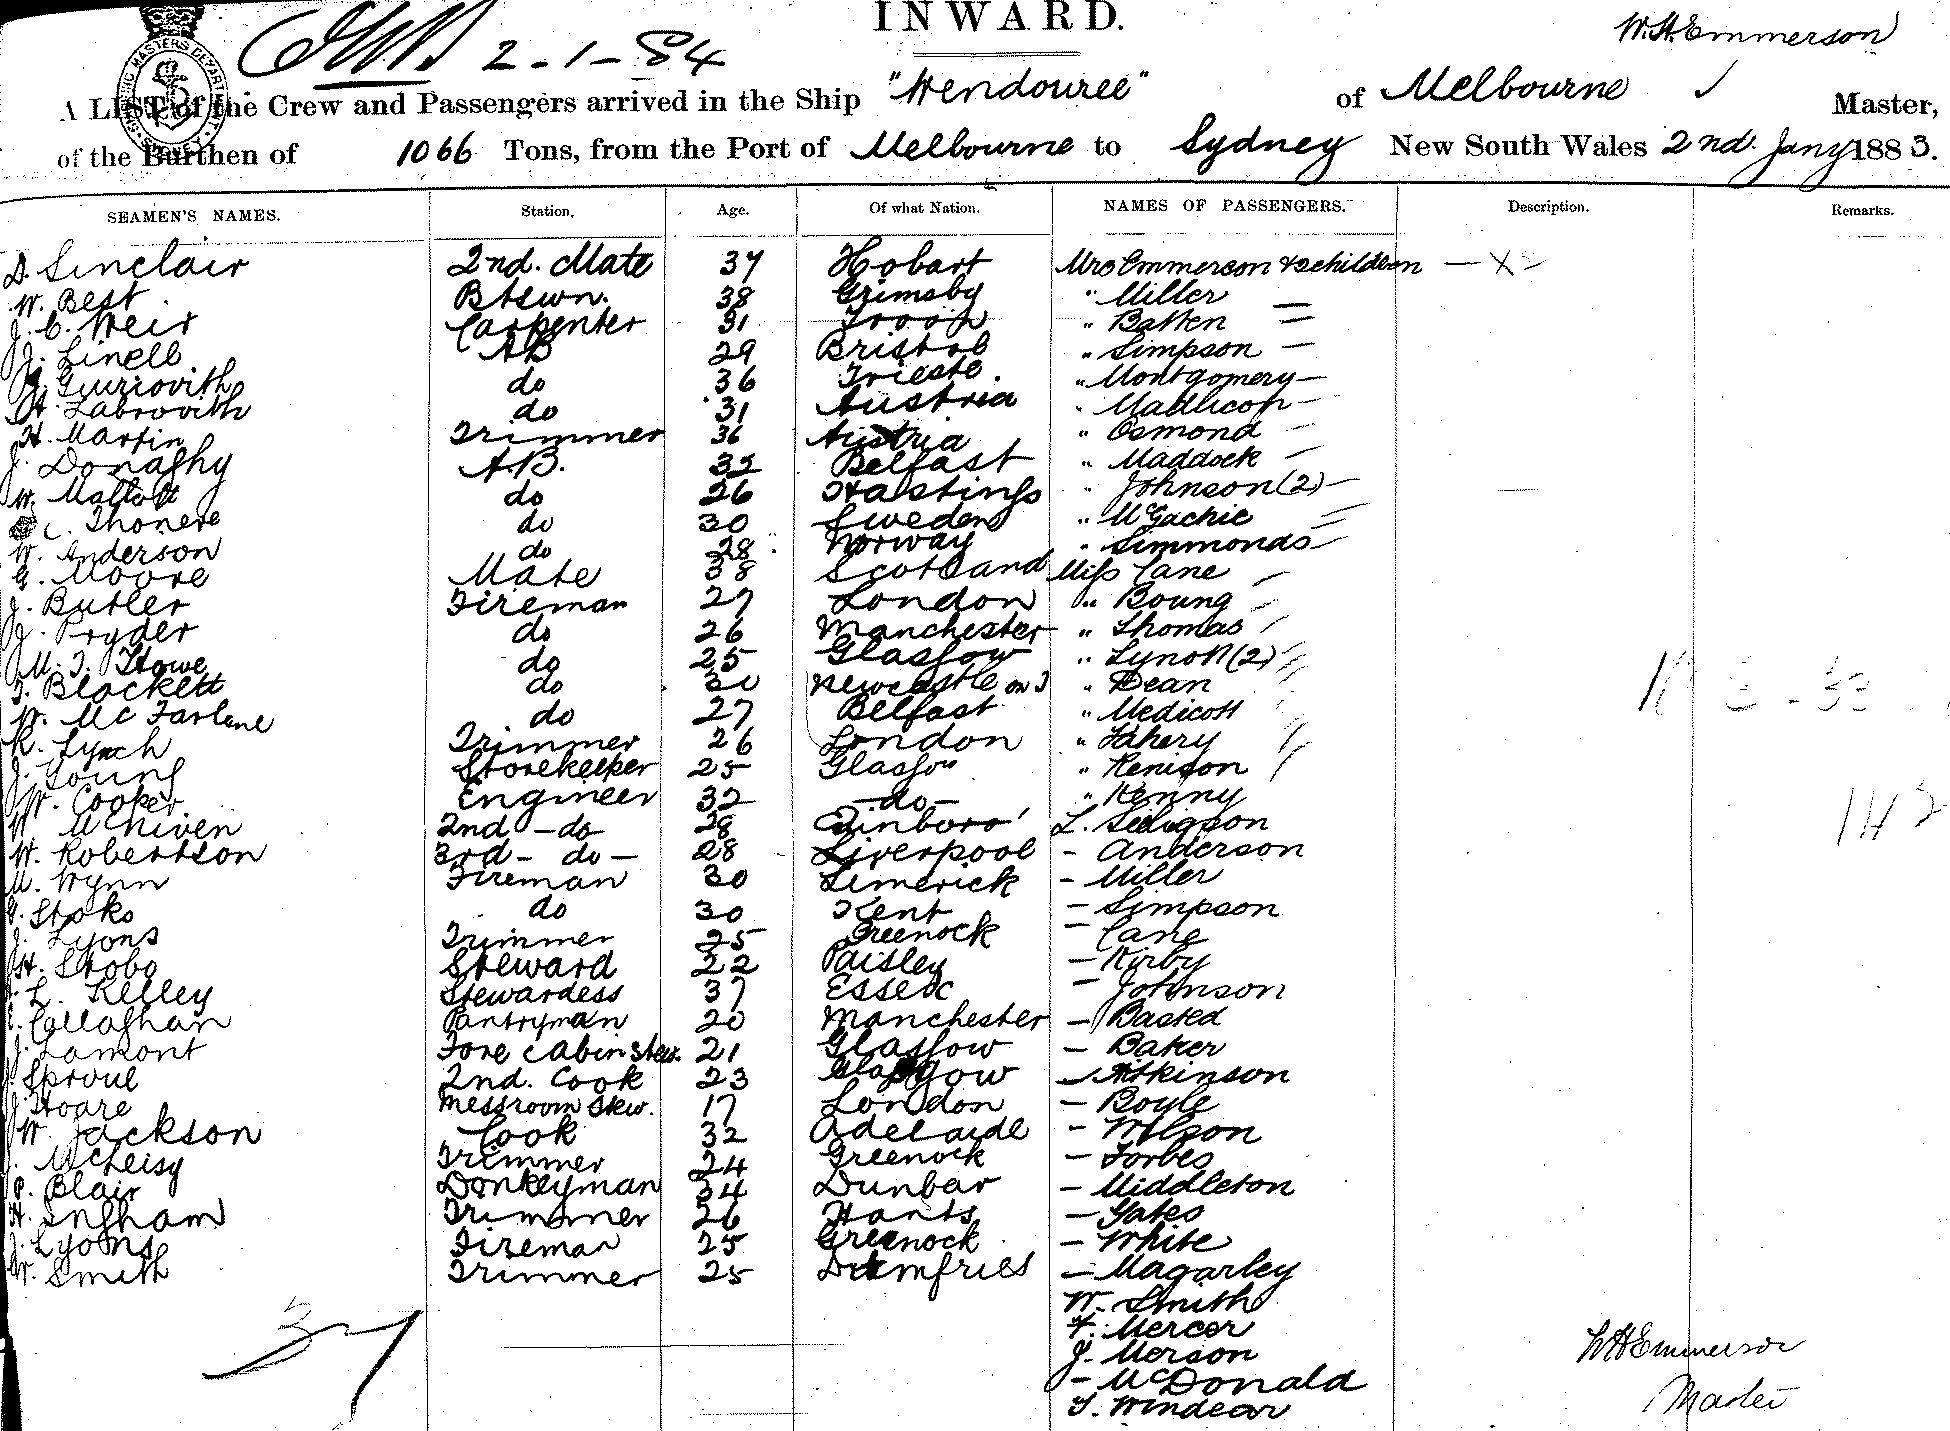 INWARD.
W. H. Emmerson
2-1-84
A LIST of the Crew and Passengers arrived in the Ship "Wendouree" of Melbourne ✓ Master,
of the Burthen of 1066 Tons, from the Port of Melbourne to Sydney New South Wales 2nd. Jany 1883.
SEAMEN'S NAMES. Station. Age. Of what Nation. NAMES OF PASSENGERS. Description. Remarks.
D. Sinclair 2nd. Mate 37 Hobart Mrs Emmerson & children
W. Best Btswn. 38 Grimsby " Miller —
J. C. Weir Carpenter 31 Troon " Batten —
J. Linell AB 29 Bristol " Simpson —
do 36 Trieste. " Montgomery —
Labrovith do 31 Austria " —
H. Martin Trimmer 36 Austria " Osmond —
J. Donaghy A.B. 32 Belfast " Maddock —
W. do 26 Hastings " Johnson (2) —
C. Thonere do 30 Sweden " McGachie
W. Anderson do 28 Norway " Simmonds —
G. Moore Mate 38 Scotland Miss Cane
J. Butler Fireman 27 London " Boung
J. Pryder do 26 Manchester " Thomas
M. J. Howe do 25 Glasgow " Lynott (2)
T. Blackett do Newcastle on T " Dean
W. McFarlane do 27 Belfast " Medicott
R. Lynch Trimmer 26 London " Fahery
J. Young Storekeeper 25 Glasgow " Kenison
W. Cooker Engineer 32 —do— " Kenny
W. McNiven 2nd —do— 28 Edinboro' L.
W. Robertson 3rd — do — 28 Liverpool - Anderson
M. Wynn Fireman 30 Limerick - Miller
G. Stoks do 30 Kent - Simpson
J. Lyons Trimmer 25 Greenock - Cane
H. Stobo Steward 22 Paisley - Kirby
L. Kelley Stewardess 37 Essex - Johnson
Callaghan Pantryman 20 Manchester - Basted
J. Lamont Fore cabin stew. 21 Glasgow - Baker
J. Sproul 2nd. Cook 23 Glasgow - Atkinson
J. Hoare Messroom Stew. 17 London - Boyle
W. Jackson Cook 32 Adelaide - Wilson
J. McLeisy Trimmer 24 Greenock - Forbes
P. Blair Donkeyman 34 Dunbar - Middleton
H. Ingham Trimmer 26 Hants - Yates
J. Lyons Fireman 25 Greenock - White
W. Smith Trimmer 25 Dumfries - Magarley
W. Smith
37
F. Mercer
J. Merson
- McDonald
T. Windear
WHEmmerson
Master